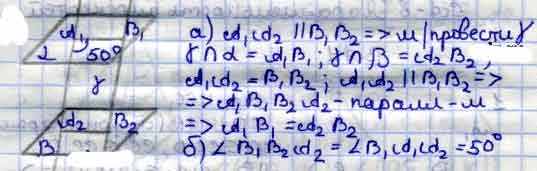 A₁ B₁
α 50°
γ
A₂ B₂
β
а) A₁A₂ || B₁B₂ => м/провести γ
γ∩α = A₁B₁; γ∩β = A₂B₂,
A₁A₂ = B₁B₂; A₁A₂ || B₁B₂ =>
=> A₁B₁B₂A₂ - паралл-м
=> A₁B₁ = A₂B₂
б) ∠B₁B₂A₂ = ∠B₁A₁A₂ = 50°